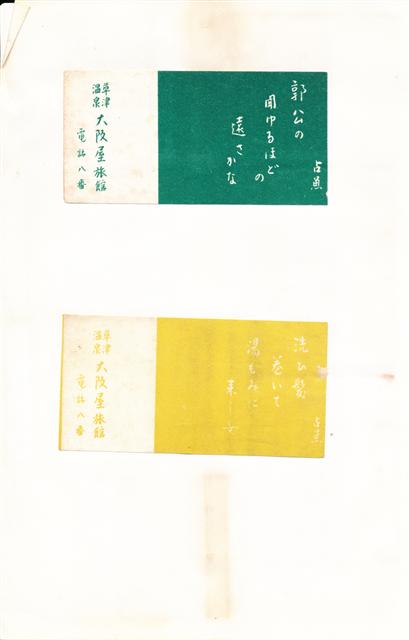 占魚
郭公の
聞ゆるほど
の
遠さかな
草津
温泉
大阪屋旅館
電話八番
占魚
洗ひ髪
巻いて
湯もみに
来し
草津
温泉
大阪屋旅館
電話八番